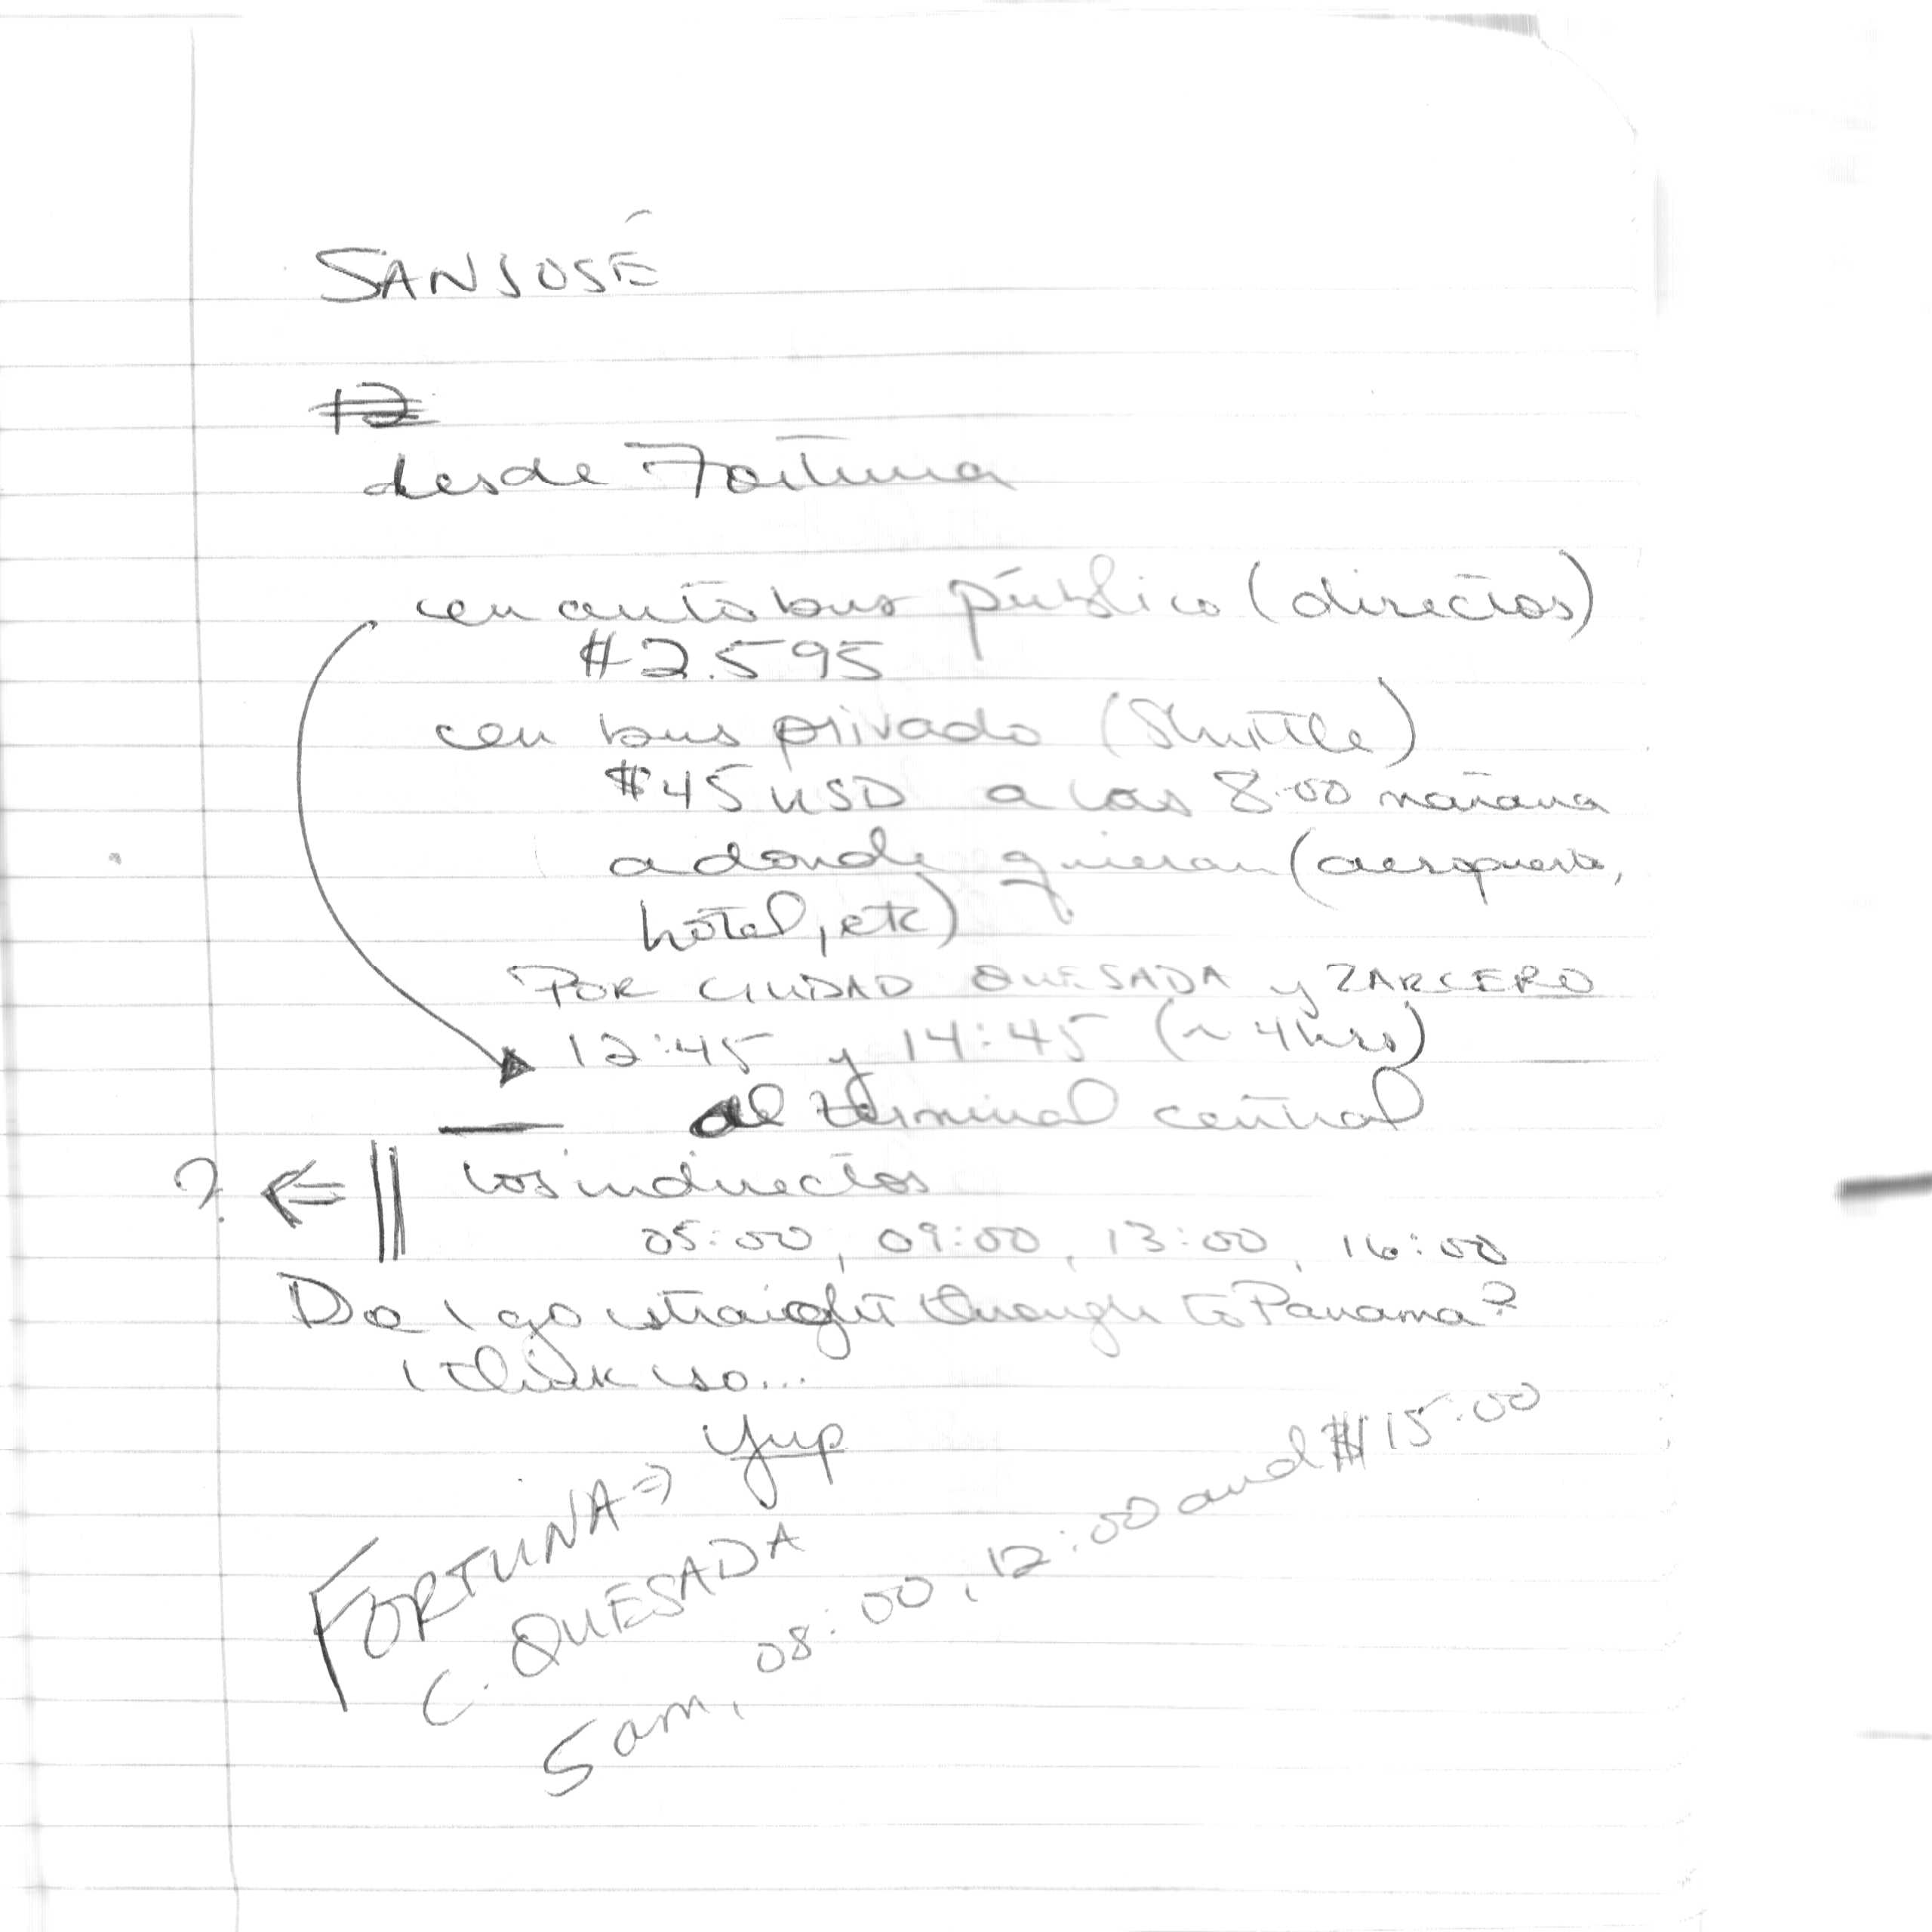 SAN JOSÉ
12
desde Fortuna
en autobus público (directos)
$2.595
en bus privado (Shuttle)
$45 USD a las 8:00 mañana
a donde quieran (aeropuerto,
hotel, etc)
POR CIUDAD QUESADA y ZARCERO
12:45 y 14:45 (~ 4hrs)
— al terminal central
? ⇐ || los indirectos
05:00, 09:00, 13:00, 16:00
Do I go straight through to Panama?
I think so...
Yup
FORTUNA ⇒
C. QUESADA
5am, 08:00, 12:00 and 15:00